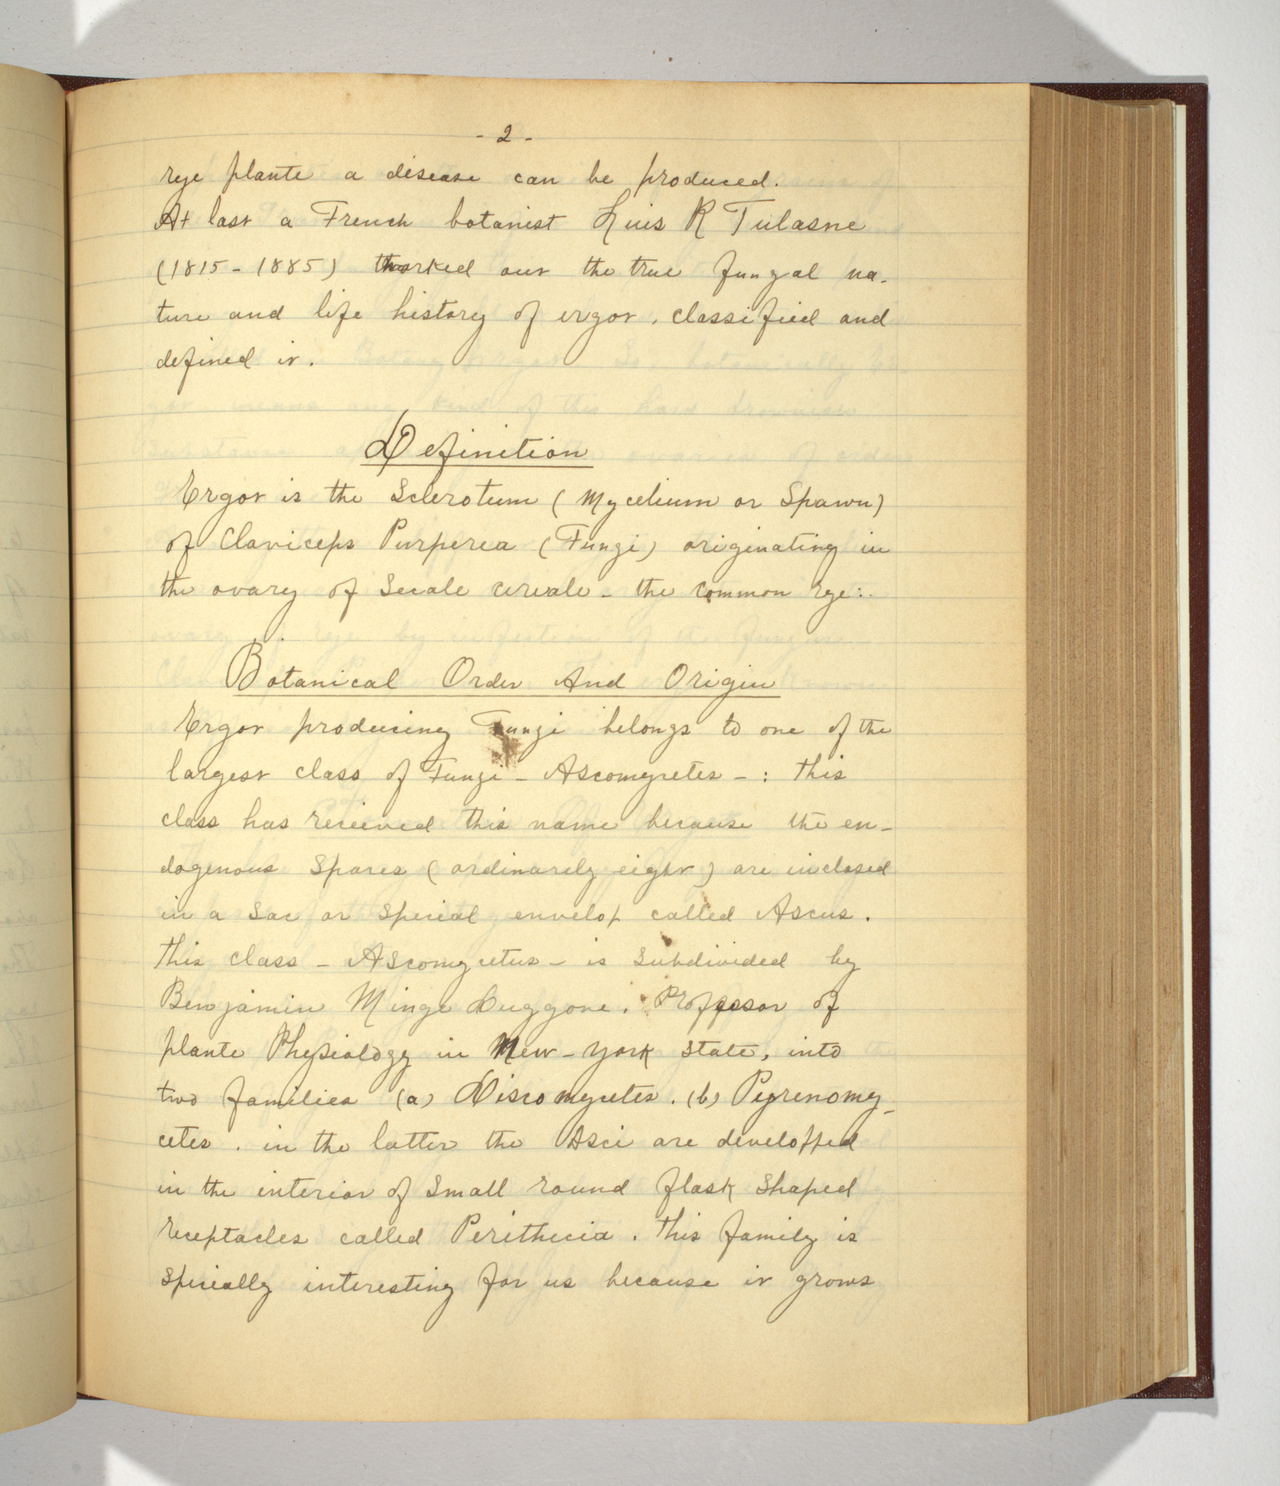 - 2 -
rye plante a disease can be produced.
At last a French botanist Luis R Tulasne
(1815 - 1885) worked out the true fungal na-
ture and life history of ergot, classified and
defined it.
Definition
Ergot is the Sclerotum (Mycelium or Spawn)
of Claviceps Purperea (Fungi) originating in
the ovary of Secale cereale - the common rye:.
Botanical Order And Origin
Ergot producing Fungi belongs to one of the
largest class of Fungi - Ascomycetes - : this
class has received this name because the en-
dogenous Spores (ordinarely eight) are inclosed
in a Sac or Special envelop called Ascus.
This class - Ascomycetes - is Subdivided by
Benjamin Minge Duggone. Professor of
plante Physiology in New-York State, into
two families (a) Discomycetes. (b) Pyrenomy-
cetes. in the latter the Asci are developped
in the interior of Small round flask Shaped
receptacles called Perithecia. This family is
Specially interesting for us because it grows